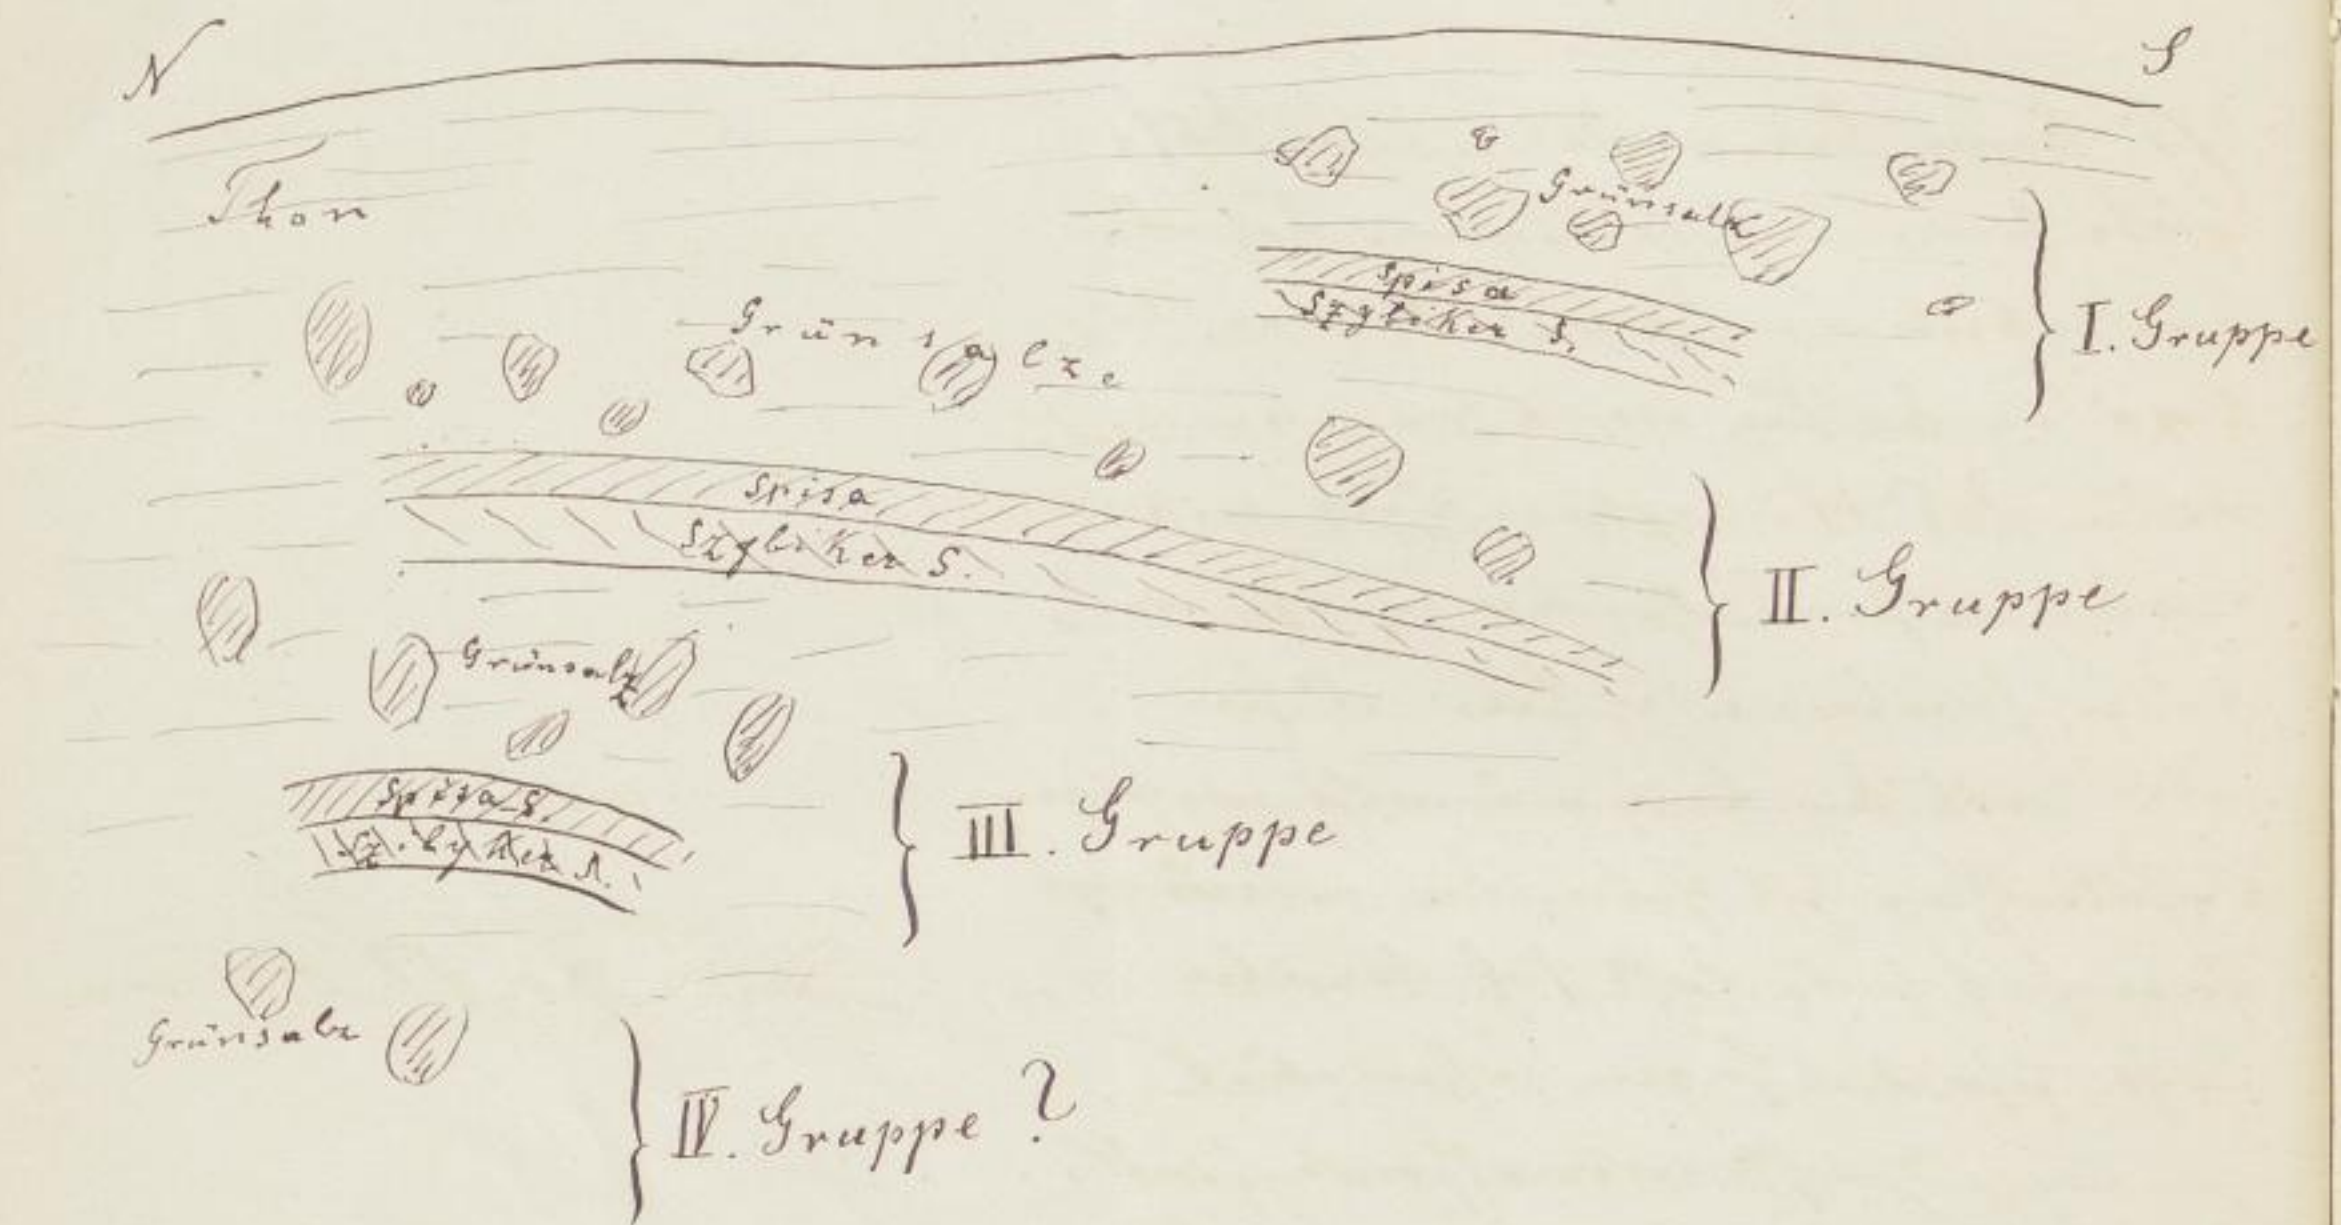 N
S
Thon
Grünsalz
Spisa
Szybiker S.
I. Gruppe
Grünsalze
Spisa
Szybiker S.
II. Gruppe
Grünsalz
Spisa S.
Szibyker S.
III. Gruppe
Grünsalz
IV. Gruppe ?